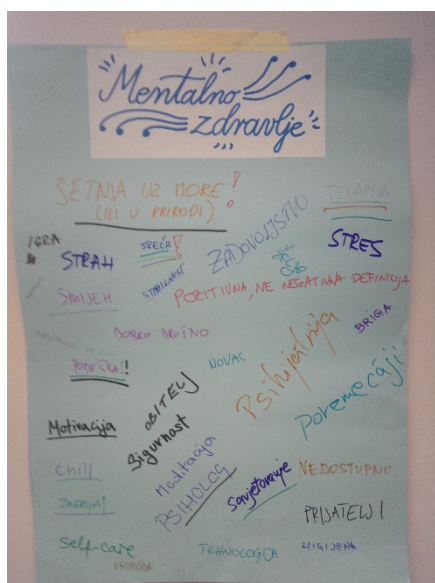 Mentalno
zdravlje
ŠETNJA UZ MORE !
(ILI U PRIRODI)
TERAPIJA
IGRA
STRAH
SREĆA!
ZADOVOLJSTVO
STRES
STABILNOST
SMIJEH
POZITIVNA, NE NEGATIVNA DEFINICIJA
DOBRO DRUŠTVO
BRIGA
PODRŠKA!!
NOVAC
Psihijatrija
poremećaji
OBITELJ
Motivacija
Sigurnost
Chill
Meditacija
PSIHOLOG
Savjetovanje
NEDOSTUPNO
ZAGRLJAJ
PRIJATELJI
Self-care
PRIRODA
TEHNOLOGIJA
HIGIJENA